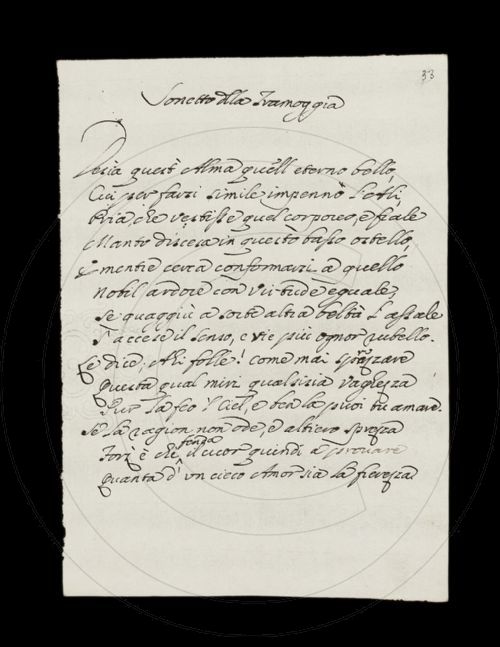 33
Sonetto della Tramoggia
Desia quest' Alma quell' eterno bello,
Cui per farsi simile impennò l'Ali,
Pria, che vestisse quel corporeo, e frale
Manto discesa in questo basso ostello,
E mentre cerca conformarsi a quello
Nobil ardore con virtude eguale,
Se quaggiù a sorte altra beltà l'assale
S'accese il senso, e vie più ognor rubello.
Se dice, Ah folle! come mai sprezzare
Questa qual miri qualsisia vaghezza
Pur la feo 'l Ciel, e bea la puoi tu amare.
Se la ragion non ode, e altiero sprezza
Forz' è che tenga il cuor quindi a provare
Quanta d' un cieco Amor sia la fierezza.